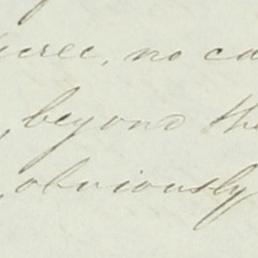 , no ca
, beyond the
, obviously